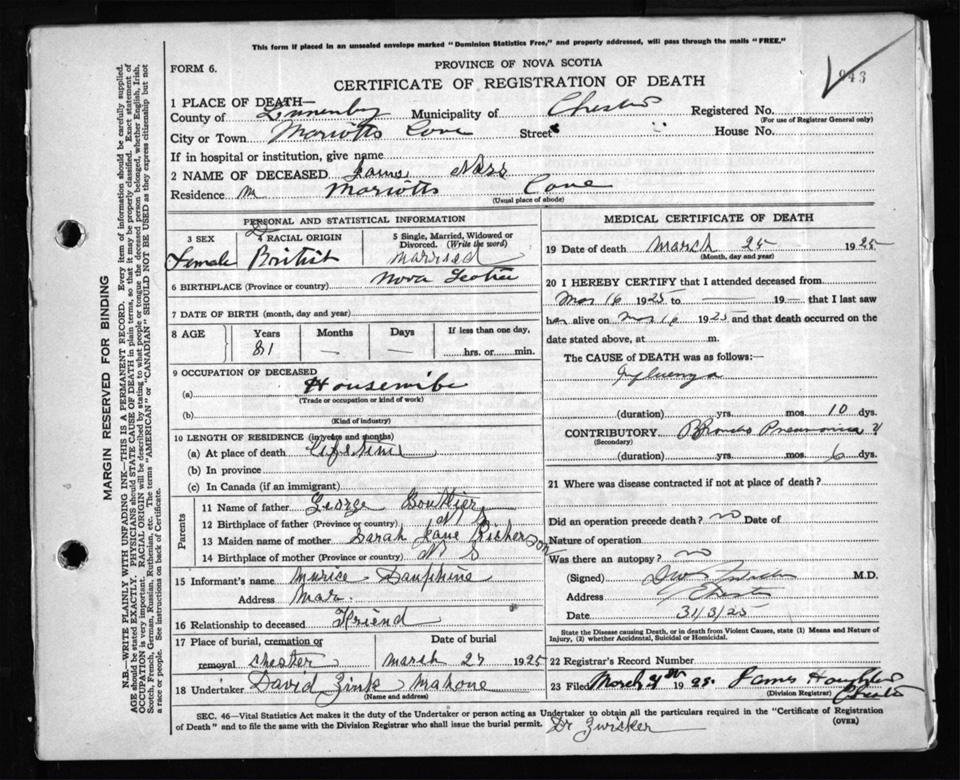 This form if placed in an unsealed envelope marked "Dominion Statistics Free," and properly addressed, will pass through the mails "FREE."
FORM 6.
PROVINCE OF NOVA SCOTIA
943
CERTIFICATE OF REGISTRATION OF DEATH
1 PLACE OF DEATH—
County of Lunenburg Municipality of Chester Registered No.
(For use of Registrar General only)
City or Town Mariotts Cove Street House No.
If in hospital or institution, give name
2 NAME OF DECEASED
Residence Mariotts Cove
(Usual place of abode)
PERSONAL AND STATISTICAL INFORMATION
3 SEX 4 RACIAL ORIGIN 5 Single, Married, Widowed or Divorced. (Write the word)
Female British married
6 BIRTHPLACE (Province or country) Nova Scotia
7 DATE OF BIRTH (month, day and year)
8 AGE Years Months Days If less than one day,
81 — — hrs. or min.
9 OCCUPATION OF DECEASED
(a) Housewife
(Trade or occupation or kind of work)
(b)
(Kind of industry)
10 LENGTH OF RESIDENCE (in years and months)
(a) At place of death Lifetime
(b) In province
(c) In Canada (if an immigrant)
Parents
11 Name of father George Boutilier
12 Birthplace of father (Province or country) N S
13 Maiden name of mother Sarah Jane
14 Birthplace of mother (Province or country) N S
15 Informant's name Dauphine
Address Mar.
16 Relationship to deceased Friend
17 Place of burial, cremation or removal Chester
Date of burial March 27 1925
18 Undertaker David Zinck Mahone
(Name and address)
MEDICAL CERTIFICATE OF DEATH
19 Date of death March 25 1925
(Month, day and year)
20 I HEREBY CERTIFY that I attended deceased from
Mar 16 1925 to — 19— that I last saw
her alive on Mar 16 1925 and that death occurred on the
date stated above, at m.
The CAUSE of DEATH was as follows:—
Influenza
(duration) yrs. mos. 10 dys.
CONTRIBUTORY Broncho Pneumonia
(Secondary)
(duration) yrs. mos. 6 dys.
21 Where was disease contracted if not at place of death?
Did an operation precede death? no Date of
Nature of operation
Was there an autopsy? no
(Signed) M.D.
Address Chester
Date 31/3/25
State the Disease causing Death, or in death from Violent Causes, state (1) Means and Nature of
Injury, (2) whether Accidental, Suicidal or Homicidal.
22 Registrar's Record Number
23 Filed March 31st 1925. James
(Division Registrar) Chester
SEC. 46—Vital Statistics Act makes it the duty of the Undertaker or person acting as Undertaker to obtain all the particulars required in the "Certificate of Registration
of Death" and to file the same with the Division Registrar who shall issue the burial permit. (OVER)
Dr Zwicker
MARGIN RESERVED FOR BINDING
N.B.—WRITE PLAINLY WITH UNFADING INK—THIS IS A PERMANENT RECORD. Every item of information should be carefully supplied.
AGE should be stated EXACTLY. PHYSICIANS should STATE CAUSE OF DEATH in plain terms, so that it may be properly classified. Exact statement of
OCCUPATION is very important. RACIAL ORIGIN will be described by stating to what people or tongue the deceased person belonged, whether English, Irish,
Scotch, French, German, Russian, Ruthenian, etc. The terms "AMERICAN" or "CANADIAN" SHOULD NOT BE USED as they express citizenship but not
a race or people. See instructions on back of Certificate.